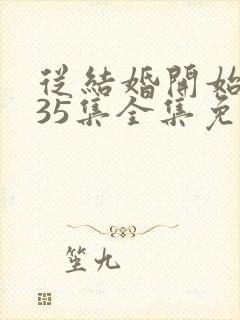 從結婚開始
35集全集免
笙九